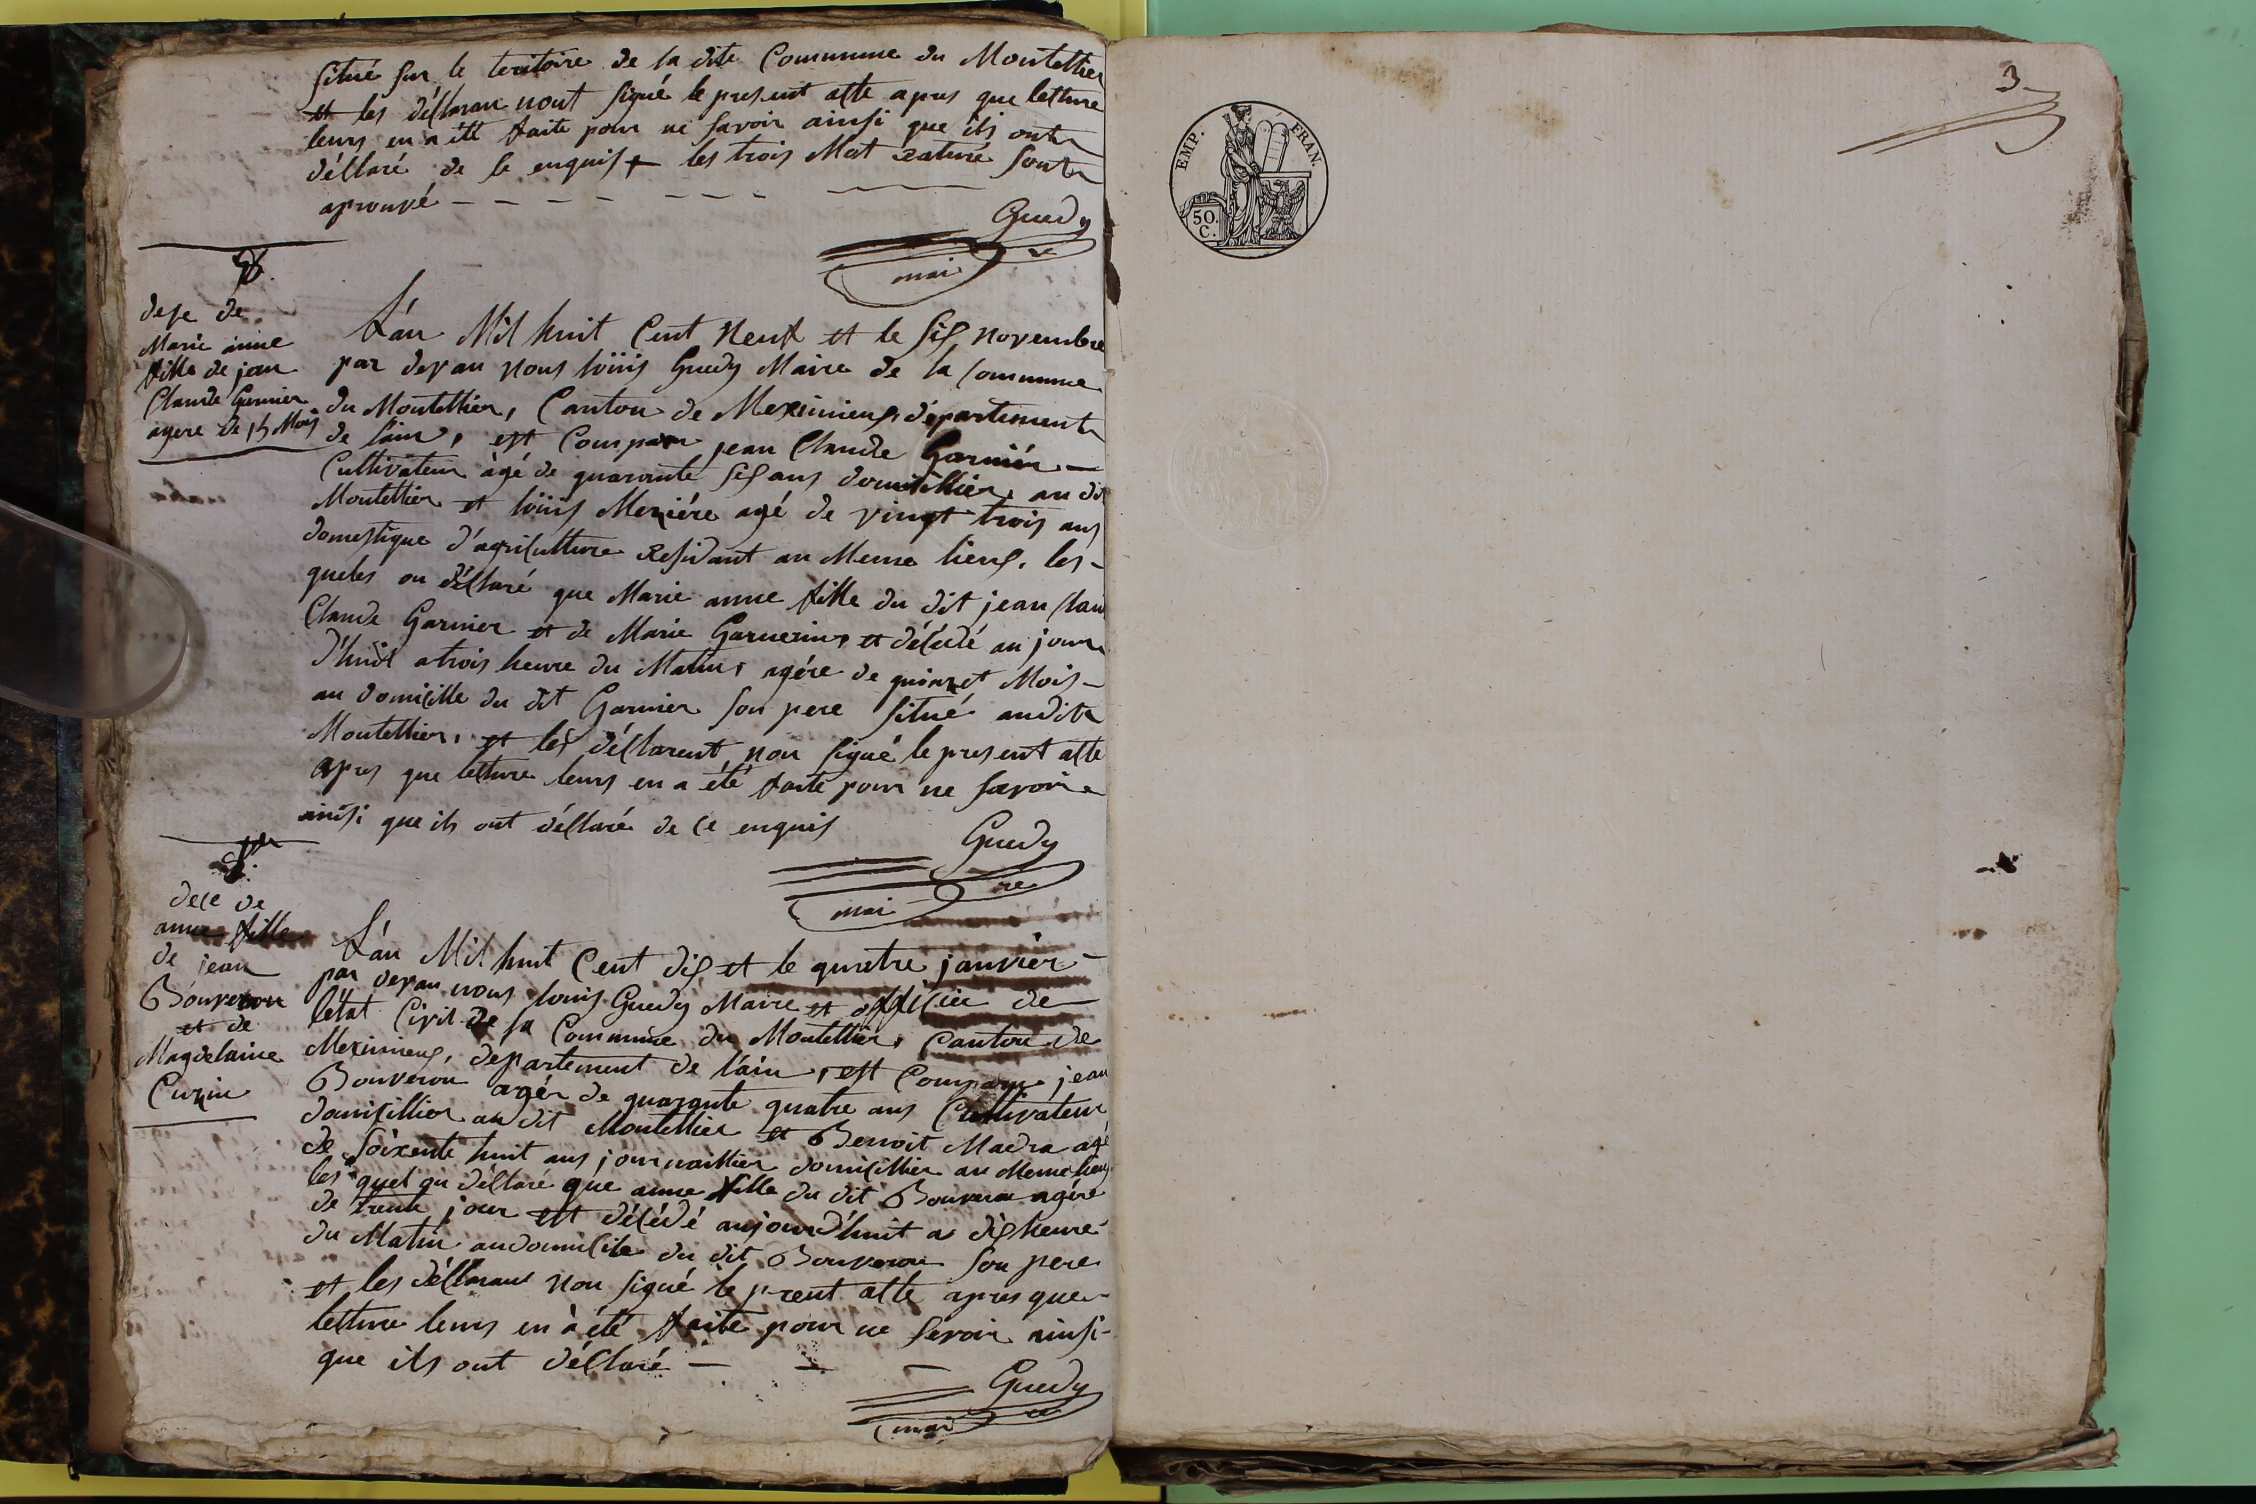 situé sur le teritoire de la dite Commune du Montellier
et les déclaran nont signé le present acte apres que lecture
leurs en a été faite pour ne savoir ainsi que ils ont
déclaré de le enquis + les trois Mot raturé sont
aprouvé
Guedy
maire
dese de
Marie anne
fille de jean
Claude Garnier
agere de 15 Mois
L'an Mil huit Cent Neuf et le six novembre
par devan nous loüis Guedy Maire de la Commune
du Montellier, Canton de Meximieux, département
de l'ain, est Comparu jean Claude Garnier
Cultivateur àgé de quarante six ans domicillier, au dit
Montellier et loüis Meziére agé de vingt trois ans
domestique d'agriculture residant au Meme lieux, les-
queles on déclaré que Marie anne fille du dit jean Clau
Claude Garnier et de Marie Garnerin, et décédé au jour
d'huit a trois heure du Matin, agére de quinzet Mois
au domicille du dit Garnier son pere situé audit
Montellier, et les déclarent non signé le present acte
apres que lecture leurs en a été faite pour ne savoir
ainsi que ils ont déclaré de ce enquis
Guedy
maire
dece de
anne fille
de jean
Bouveron
et de
Magdelaine
Curzin
L'an Mil huit Cent dix et le quatre janvier
par devan nous louis Guedy Maire et officier de
l'état Civil de la Commune du Montellier, Canton de
Meximieux, département de l'ain, est Comparu jean
Bouveron agér de quarante quatre ans Cultivateur
domicillier au dit Montellier et Benoit Madra agé
de soixente huit ans journaillier domicillier au Meme lieux
les quel on déclaré que anne fille du dit Bouveron agére
de trente jour est décédé aujourd'huit a dix heure
du Matin audomicile du dit Bouveron son pere
et les déclarant non signé le prent acte apres que
lecture leurs en à été faite pour ne savoir ainsi-
que ils ont déclaré
Guedy
maire
3
EMP. FRAN.
50.
C.